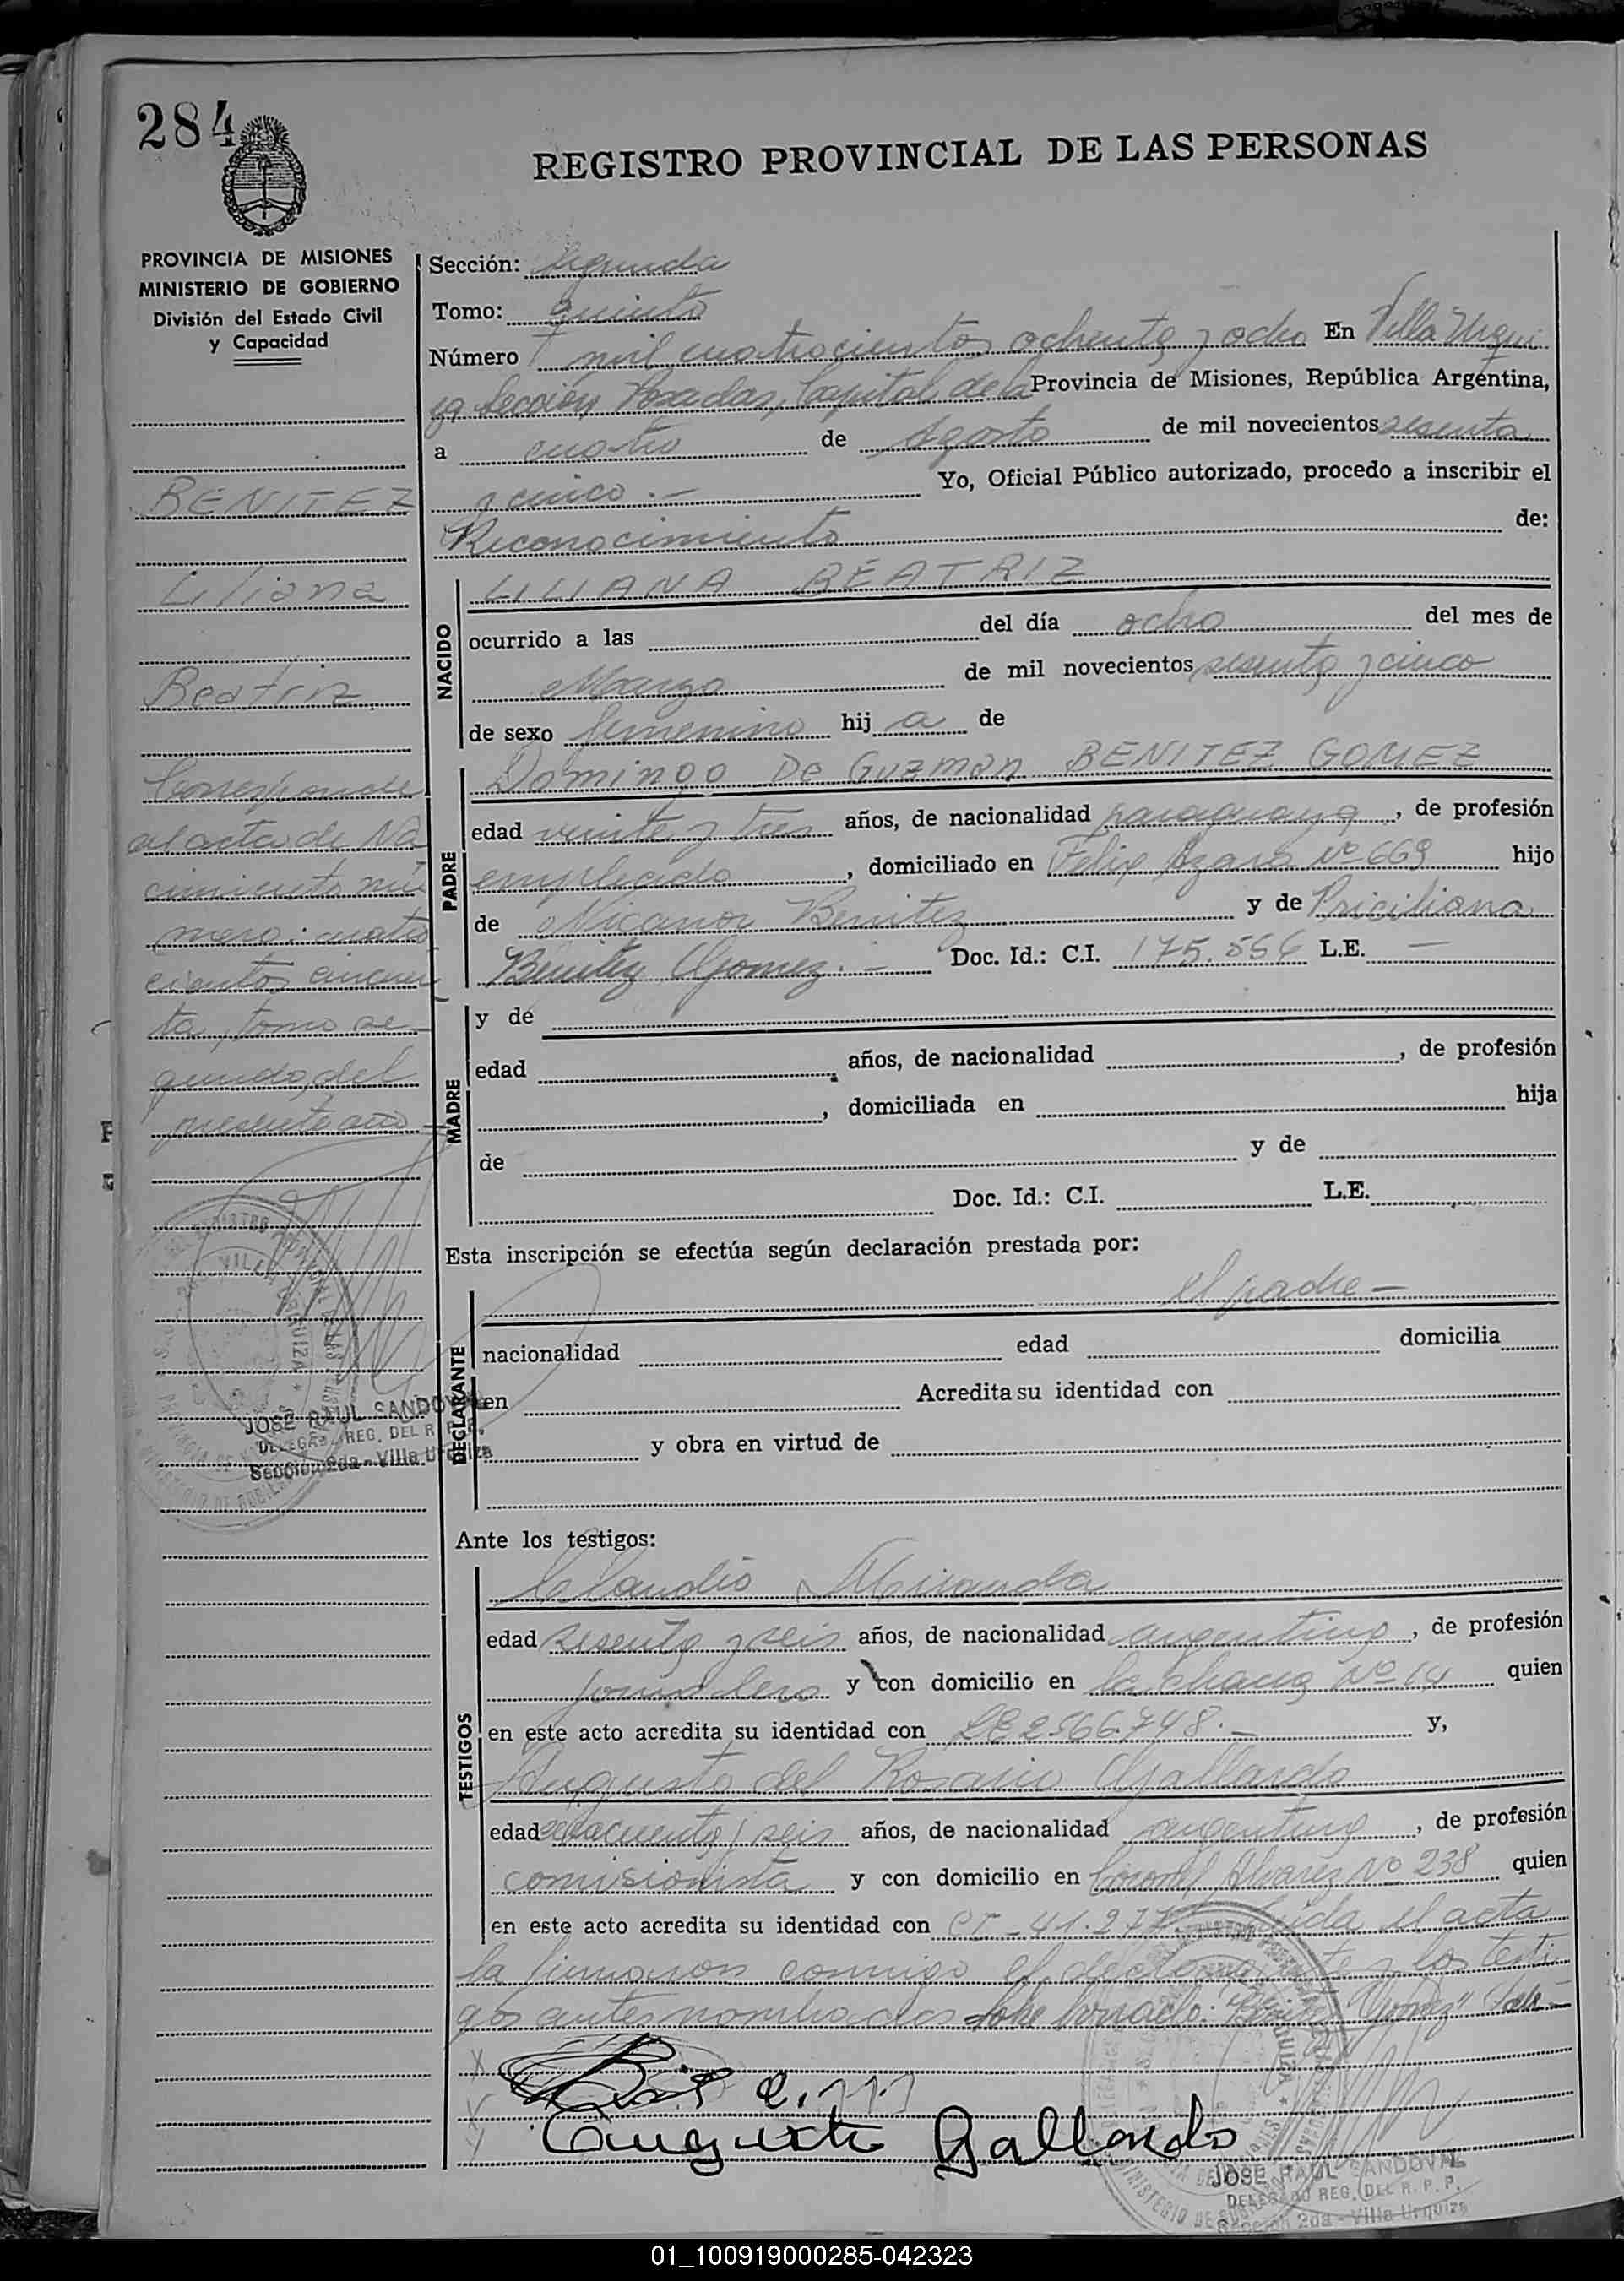 284
REGISTRO PROVINCIAL DE LAS PERSONAS
PROVINCIA DE MISIONES
MINISTERIO DE GOBIERNO
División del Estado Civil
y Capacidad
BENITEZ
Liliana
Beatriz
Corresponde
al acta de Na
cimiento nú
mero: cuatro
cientos cincuen
ta, tomo se-
gundo, del
presente año
JOSE RAUL SANDOVAL
DELEGADO REG. DEL R. P. P.
Sección 2da - Villa Urquiza
Sección: Segunda
Tomo: quinto
Número mil cuatrocientos ochenta y ocho En Villa Urqui
za Sección Posadas, Capital de la Provincia de Misiones, República Argentina,
a cuatro de Agosto de mil novecientos sesenta
y cinco.- Yo, Oficial Público autorizado, procedo a inscribir el
Reconocimiento de:
NACIDO
LILIANA BEATRIZ
ocurrido a las del día ocho del mes de
Marzo de mil novecientos sesenta y cinco
de sexo femenino hij a de
PADRE
Domingo De Guzman BENITEZ GOMEZ
edad veinte y tres años, de nacionalidad paraguaya, de profesión
empleado, domiciliado en Felix Azara Nº 669 hijo
de Nicanor Benitez y de Priciliana
Benitez Gomez.- Doc. Id.: C.I. 175.556 L.E. —
MADRE
y de
edad años, de nacionalidad , de profesión
, domiciliada en hija
de y de
Doc. Id.: C.I. L.E.
Esta inscripción se efectúa según declaración prestada por:
DECLARANTE
el padre -
nacionalidad edad domicilia
en Acredita su identidad con
y obra en virtud de
Ante los testigos:
TESTIGOS
Claudio Miranda
edad sesenta y seis años, de nacionalidad argentino, de profesión
jornalero y con domicilio en la chacra Nº 14 quien
en este acto acredita su identidad con LE 2566.748.- y,
Augusto del Rosario Gallardo
edad y seis años, de nacionalidad argentino, de profesión
comisionista y con domicilio en Coronel Alvarez Nº 238 quien
en este acto acredita su identidad con CI - 41.277 Leida el acta
la firmaron conmigo el declarante y los testi
gos antes nombrados. Sobre borrado: "Benitez Gomez" Vale-
Augusto Gallardo
JOSE RAUL SANDOVAL
DELEGADO REG. DEL R. P. P.
Sección 2da - Villa Urquiza
01_100919000285-042323